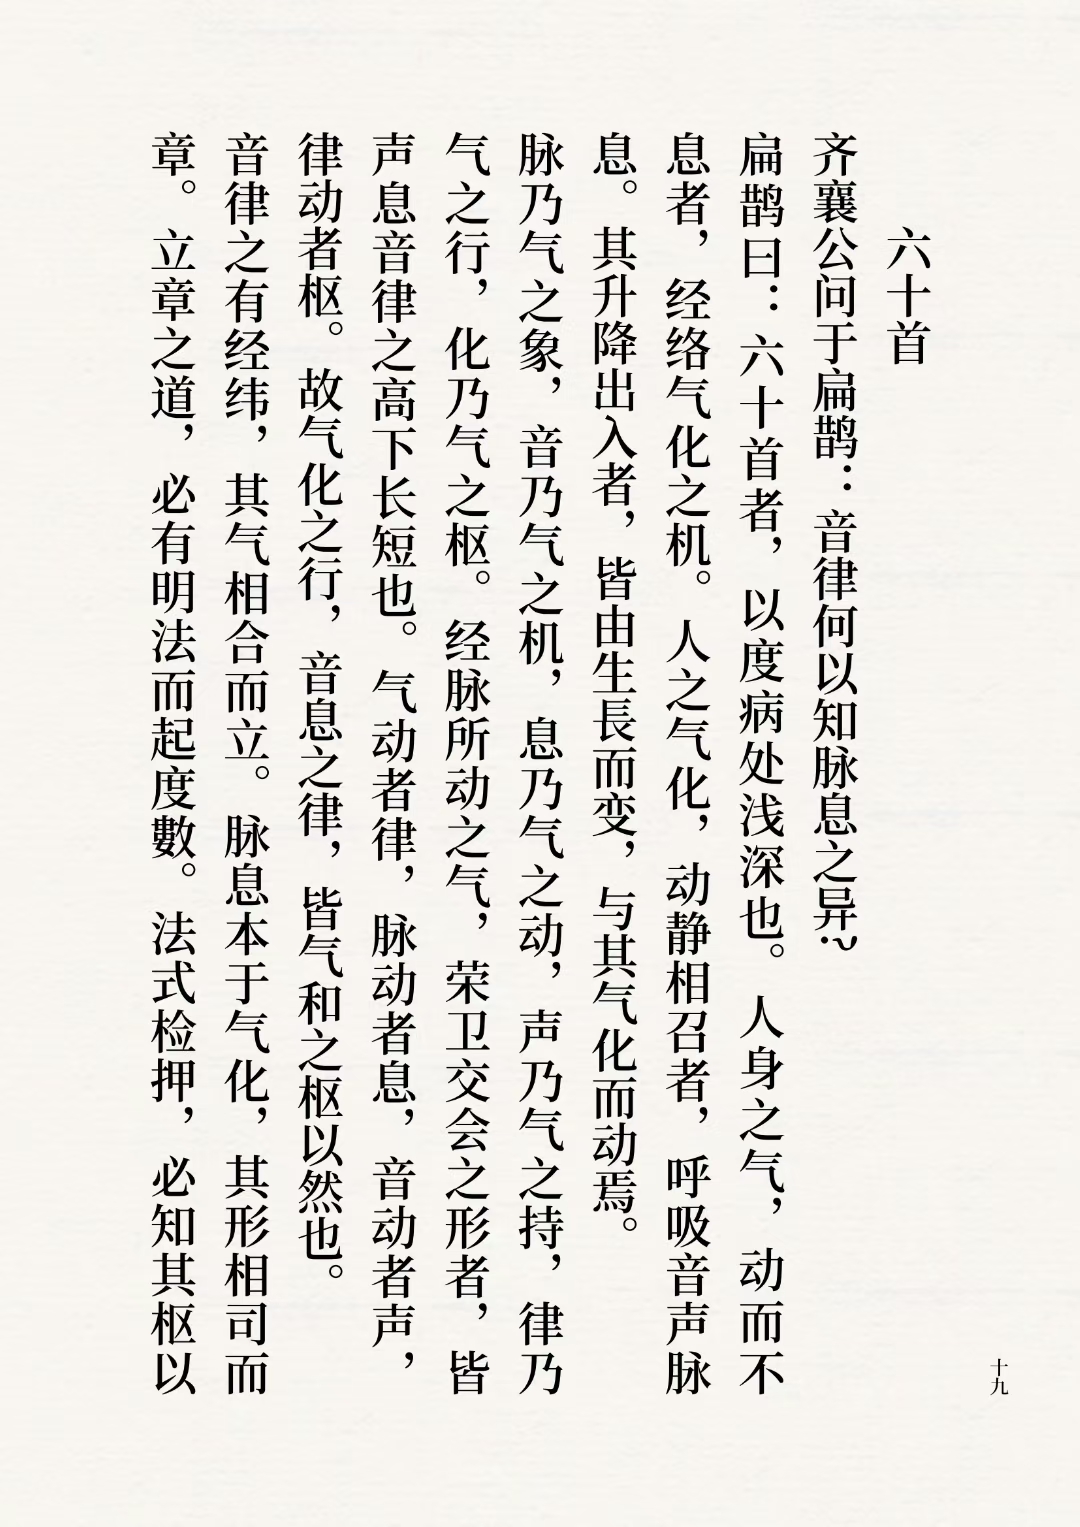 六十首
齐襄公问于扁鹊：音律何以知脉息之异？
扁鹊曰：六十首者，以度病处浅深也。人身之气，动而不
息者，经络气化之机。人之气化，动静相召者，呼吸音声脉
息。其升降出入者，皆由生長而变，与其气化而动焉。
脉乃气之象，音乃气之机，息乃气之动，声乃气之持，律乃
气之行，化乃气之枢。经脉所动之气，荣卫交会之形者，皆
声息音律之高下长短也。气动者律，脉动者息，音动者声，
律动者枢。故气化之行，音息之律，皆气和之枢以然也。
音律之有经纬，其气相合而立。脉息本于气化，其形相司而
章。立章之道，必有明法而起度數。法式检押，必知其枢以
十九